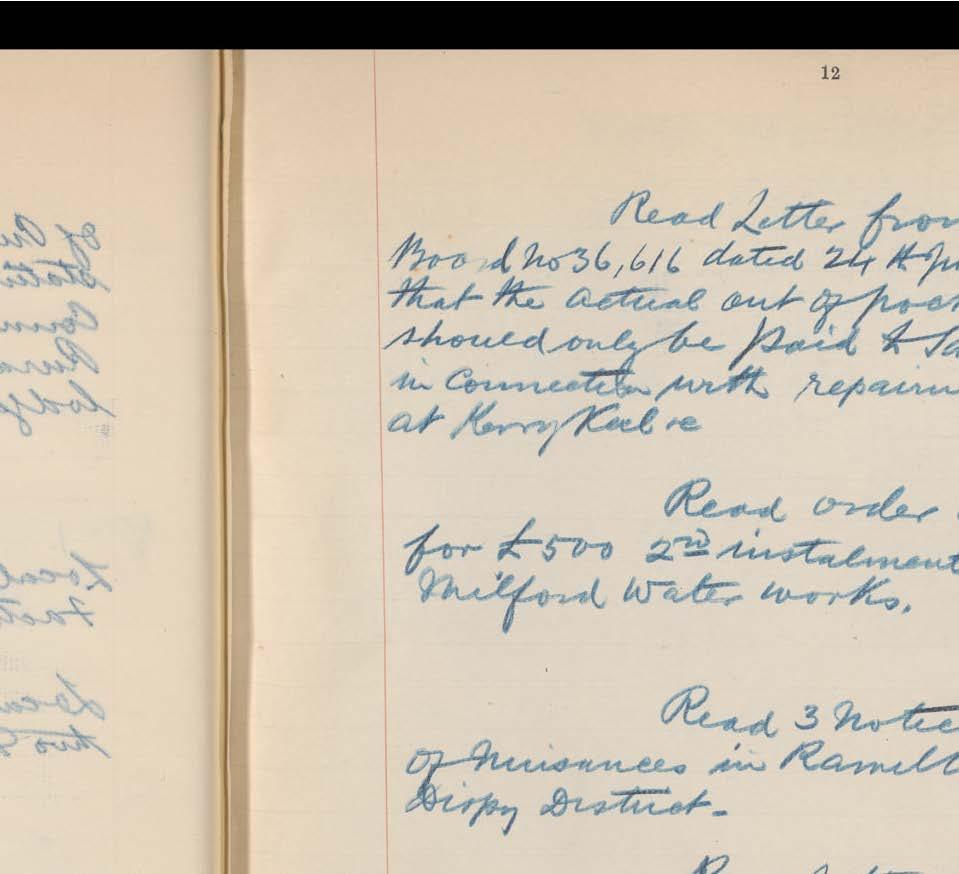 12
Read Letter from
Board No 36,616 dated 24th
that the actual out of pock
should only be paid to
in Connection with repairin
at Kerry Keel re
Read order
for £500 2nd instalment
Milford Water works.
Read 3 Notic
of Nuisances in Ramelt
Dispy District -